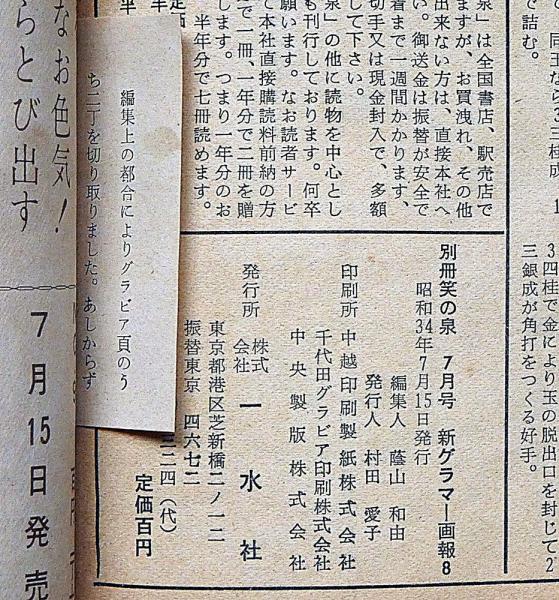 同玉なら3
桂成
で詰む。
3四桂で金により玉の脱出口を封じて2
三銀成が角打をつくる好手。
泉」は全国書店、駅売店で
ますが、お買洩れ、その他
出来ない方は、直接本社へ
い。御送金は振替が安全で
着まで一週間かかります、
切手又は現金封入で、多額
して下さい。
泉」の他に読物を中心とし
も刊行しております。何卒
願います。なお読者サービ
て本社直接購読料前納の方
で一冊、一年分で二冊を贈
します。つまり一年分のお
半年分で七冊読めます。
定価
半
別冊笑の泉 7月号 新グラマー画報8
昭和34年7月15日発行
編集人 蔭山 和由
発行人 村田 愛子
印刷所 中越印刷製紙株式会社
千代田グラビア印刷株式会社
中央製版株式会社
発行所 株式会社 一水社
東京都港区芝新橋二ノ一二
振替東京 四六七二
三二四(代)
定価百円
編集上の都合によりグラビア頁のう
ち二丁を切り取りました。あしからず
なお色気!
らとび出す
7月15日発売